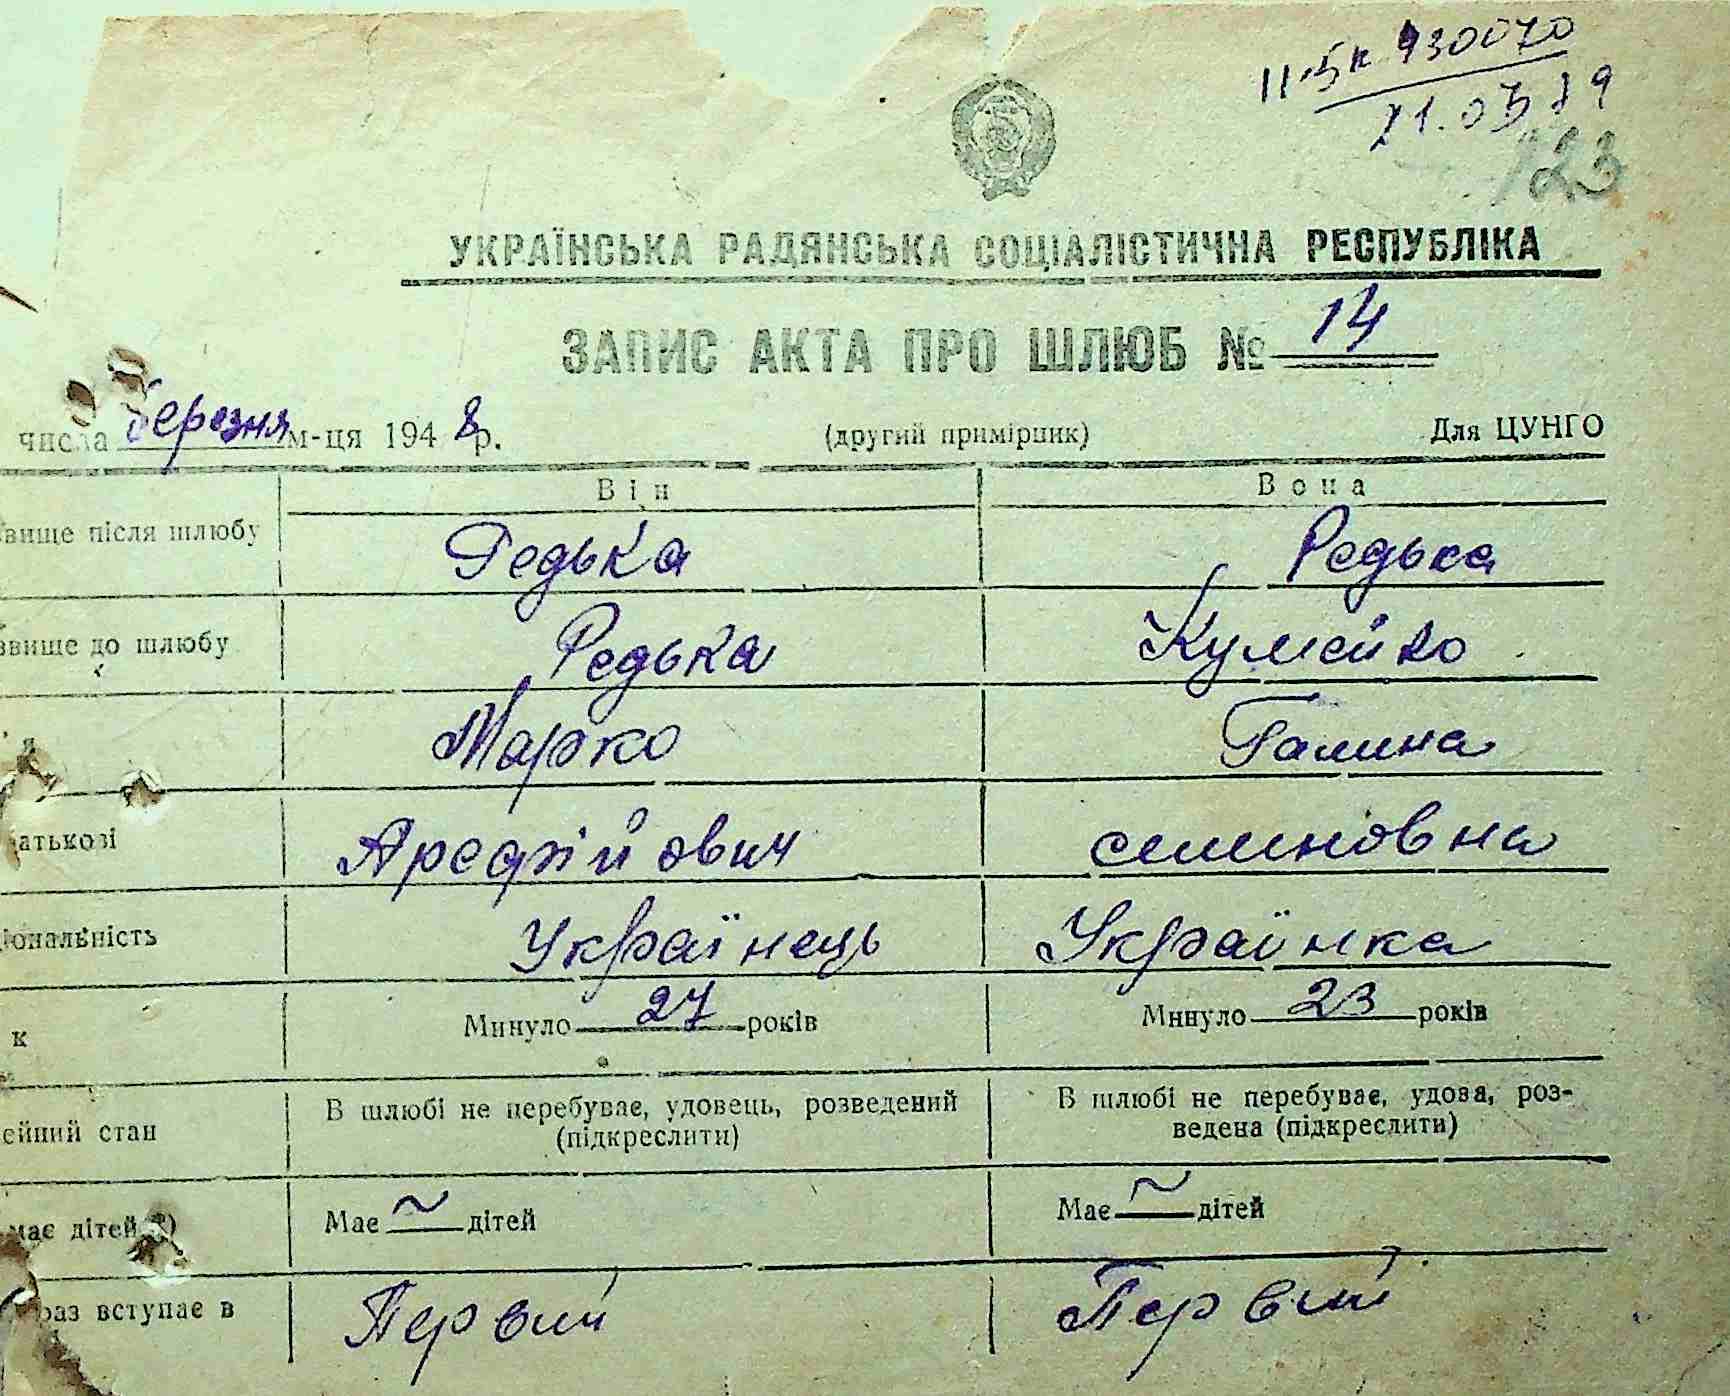 II-БК 930070
21.03.89
123
УКРАЇНСЬКА РАДЯНСЬКА СОЦІАЛІСТИЧНА РЕСПУБЛІКА
ЗАПИС АКТА ПРО ШЛЮБ № 14
числа березня м-ця 1948 р. (другий примірник) Для ЦУНГО
Він Вона
звище після шлюбу Редька Редька
звище до шлюбу Редька Кумейко
Марко Галина
батькові Арефійович семеновна
ціональність Українець Українка
к Минуло 27 років Минуло 23 років
ейний стан В шлюбі не перебуває, удовець, розведений В шлюбі не перебуває, удова, роз-
(підкреслити) ведена (підкреслити)
має дітей Має ~ дітей Має ~ дітей
раз вступає в Первий Первий